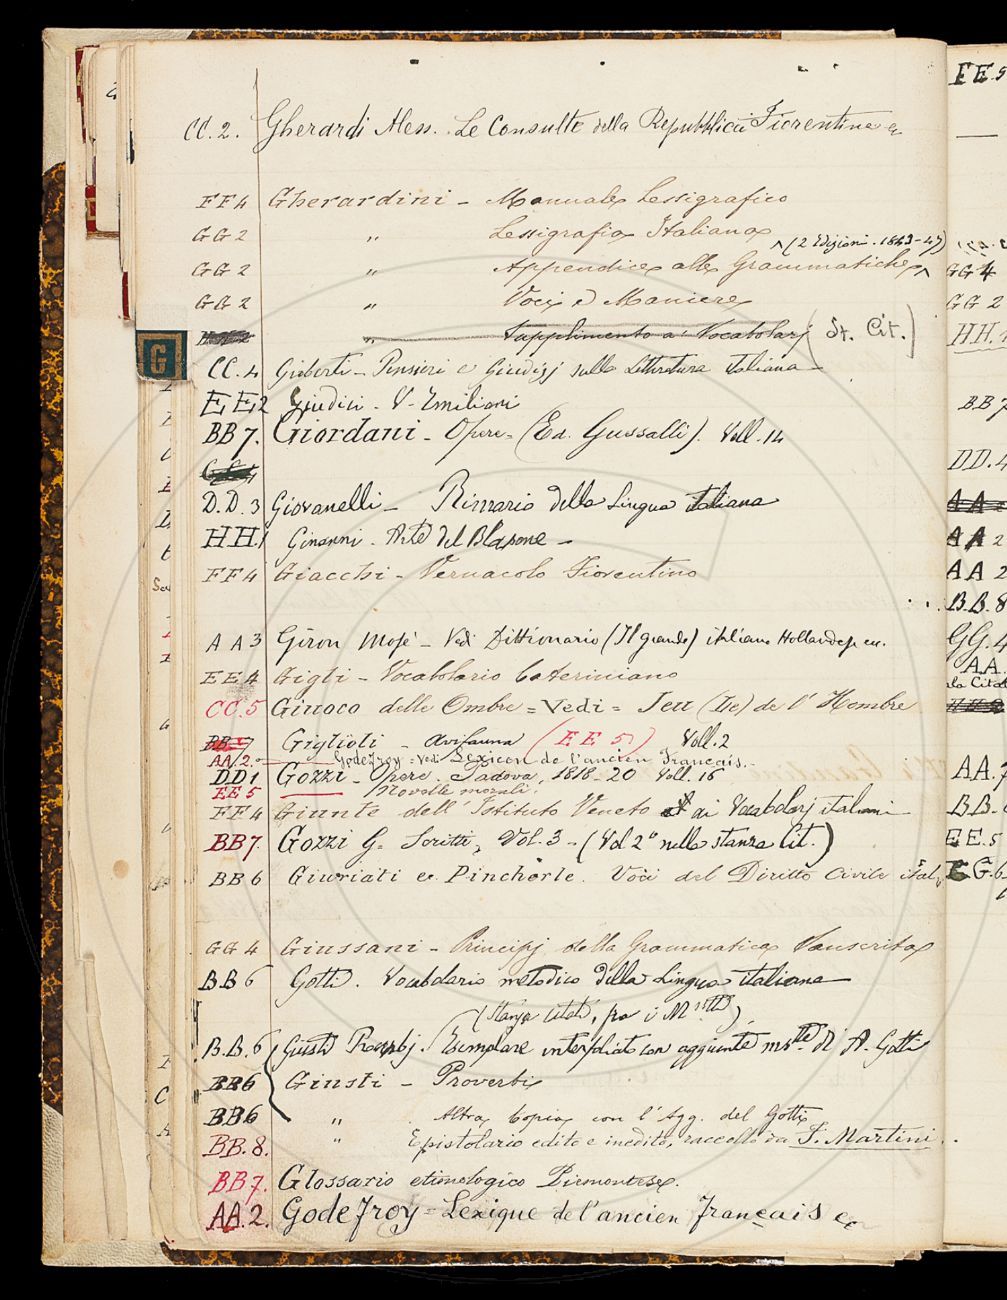 CC. 2. Gherardi Aless. Le Consulte della Repubblica Fiorentina
FF4 Gherardini - Manuale Lessigrafico
GG2 " Lessigrafia Italiana
(2 Edizioni. 1843-47)
GG2 " Appendice alle Grammatiche
GG2 " Voci e Maniere
" Supplimento a' Vocabolarj (St. Cit.)
CC. 4 Gioberti - Pensieri e Giudizj sulla Letteratura italiana -
EE2 Giudici - V. Emiliani
BB7. Giordani - Opere = (Ed. Gussalli). Voll. 14
D.D. 3 Giovanelli - Rimario della Lingua italiana
HH.1 Ginanni. Arte del Blasone -
FF4 Giacchi - Vernacolo Fiorentino
AA3 Giron Mosé - Vedi Dittionario (Il grande) italiano Hollandese
EE4 Gigli - Vocabolario Cateriniano
CC.5 Giuoco delle Ombre = Vedi = Jeu (Le) de l'Hombre
BB.7 Giglioli - Avifauna (EE5) Voll. 2
AA.2. Godefroy = Vedi Lexicon de l'ancien Français.
DD1 Gozzi - Opere. Padova, 1818-20 Voll. 16
EE5 Novelle morali.
FF4 Giunte dell'Istituto Veneto ai Vocabolarj italiani
BB7. Gozzi G. Scritti, Vol. 3 - (Vol 2º nella stanza Cit.)
BB6 Giuriati e Pincherle. Voci del Diritto Civile ital.
GG4 Giussani - Principj della Grammatica Sanscrita
BB6 Gotti. Vocabolario metodico della Lingua italiana
(Stanza Citati, fra i Mstti)
B.B.6 Giusti Proverbj. Esemplare interfoliato con aggiunte mstte di A. Gotti
BB6 Giusti - Proverbi
BB6 " Altra Copia con l'Agg. del Gotti
BB.8. " Epistolario edito e inedito, raccolto da F. Martini.
BB7. Glossario etimologico Piemontese.
AA.2. Godefroy = Lexique de l'ancien Français
G
EE.5
GG4
GG2
HH.4
BB7
DD.4
AA2
AA2
B.B.8
GG.4
AA.
AA.7
BB.
EE.5